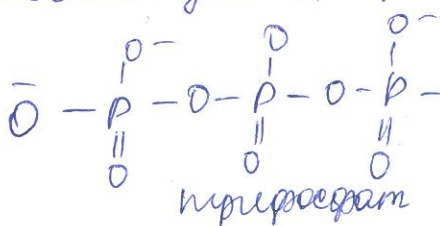 O⁻ O O⁻
⁻O – P – O – P – O – P –
O O O
трифосфат